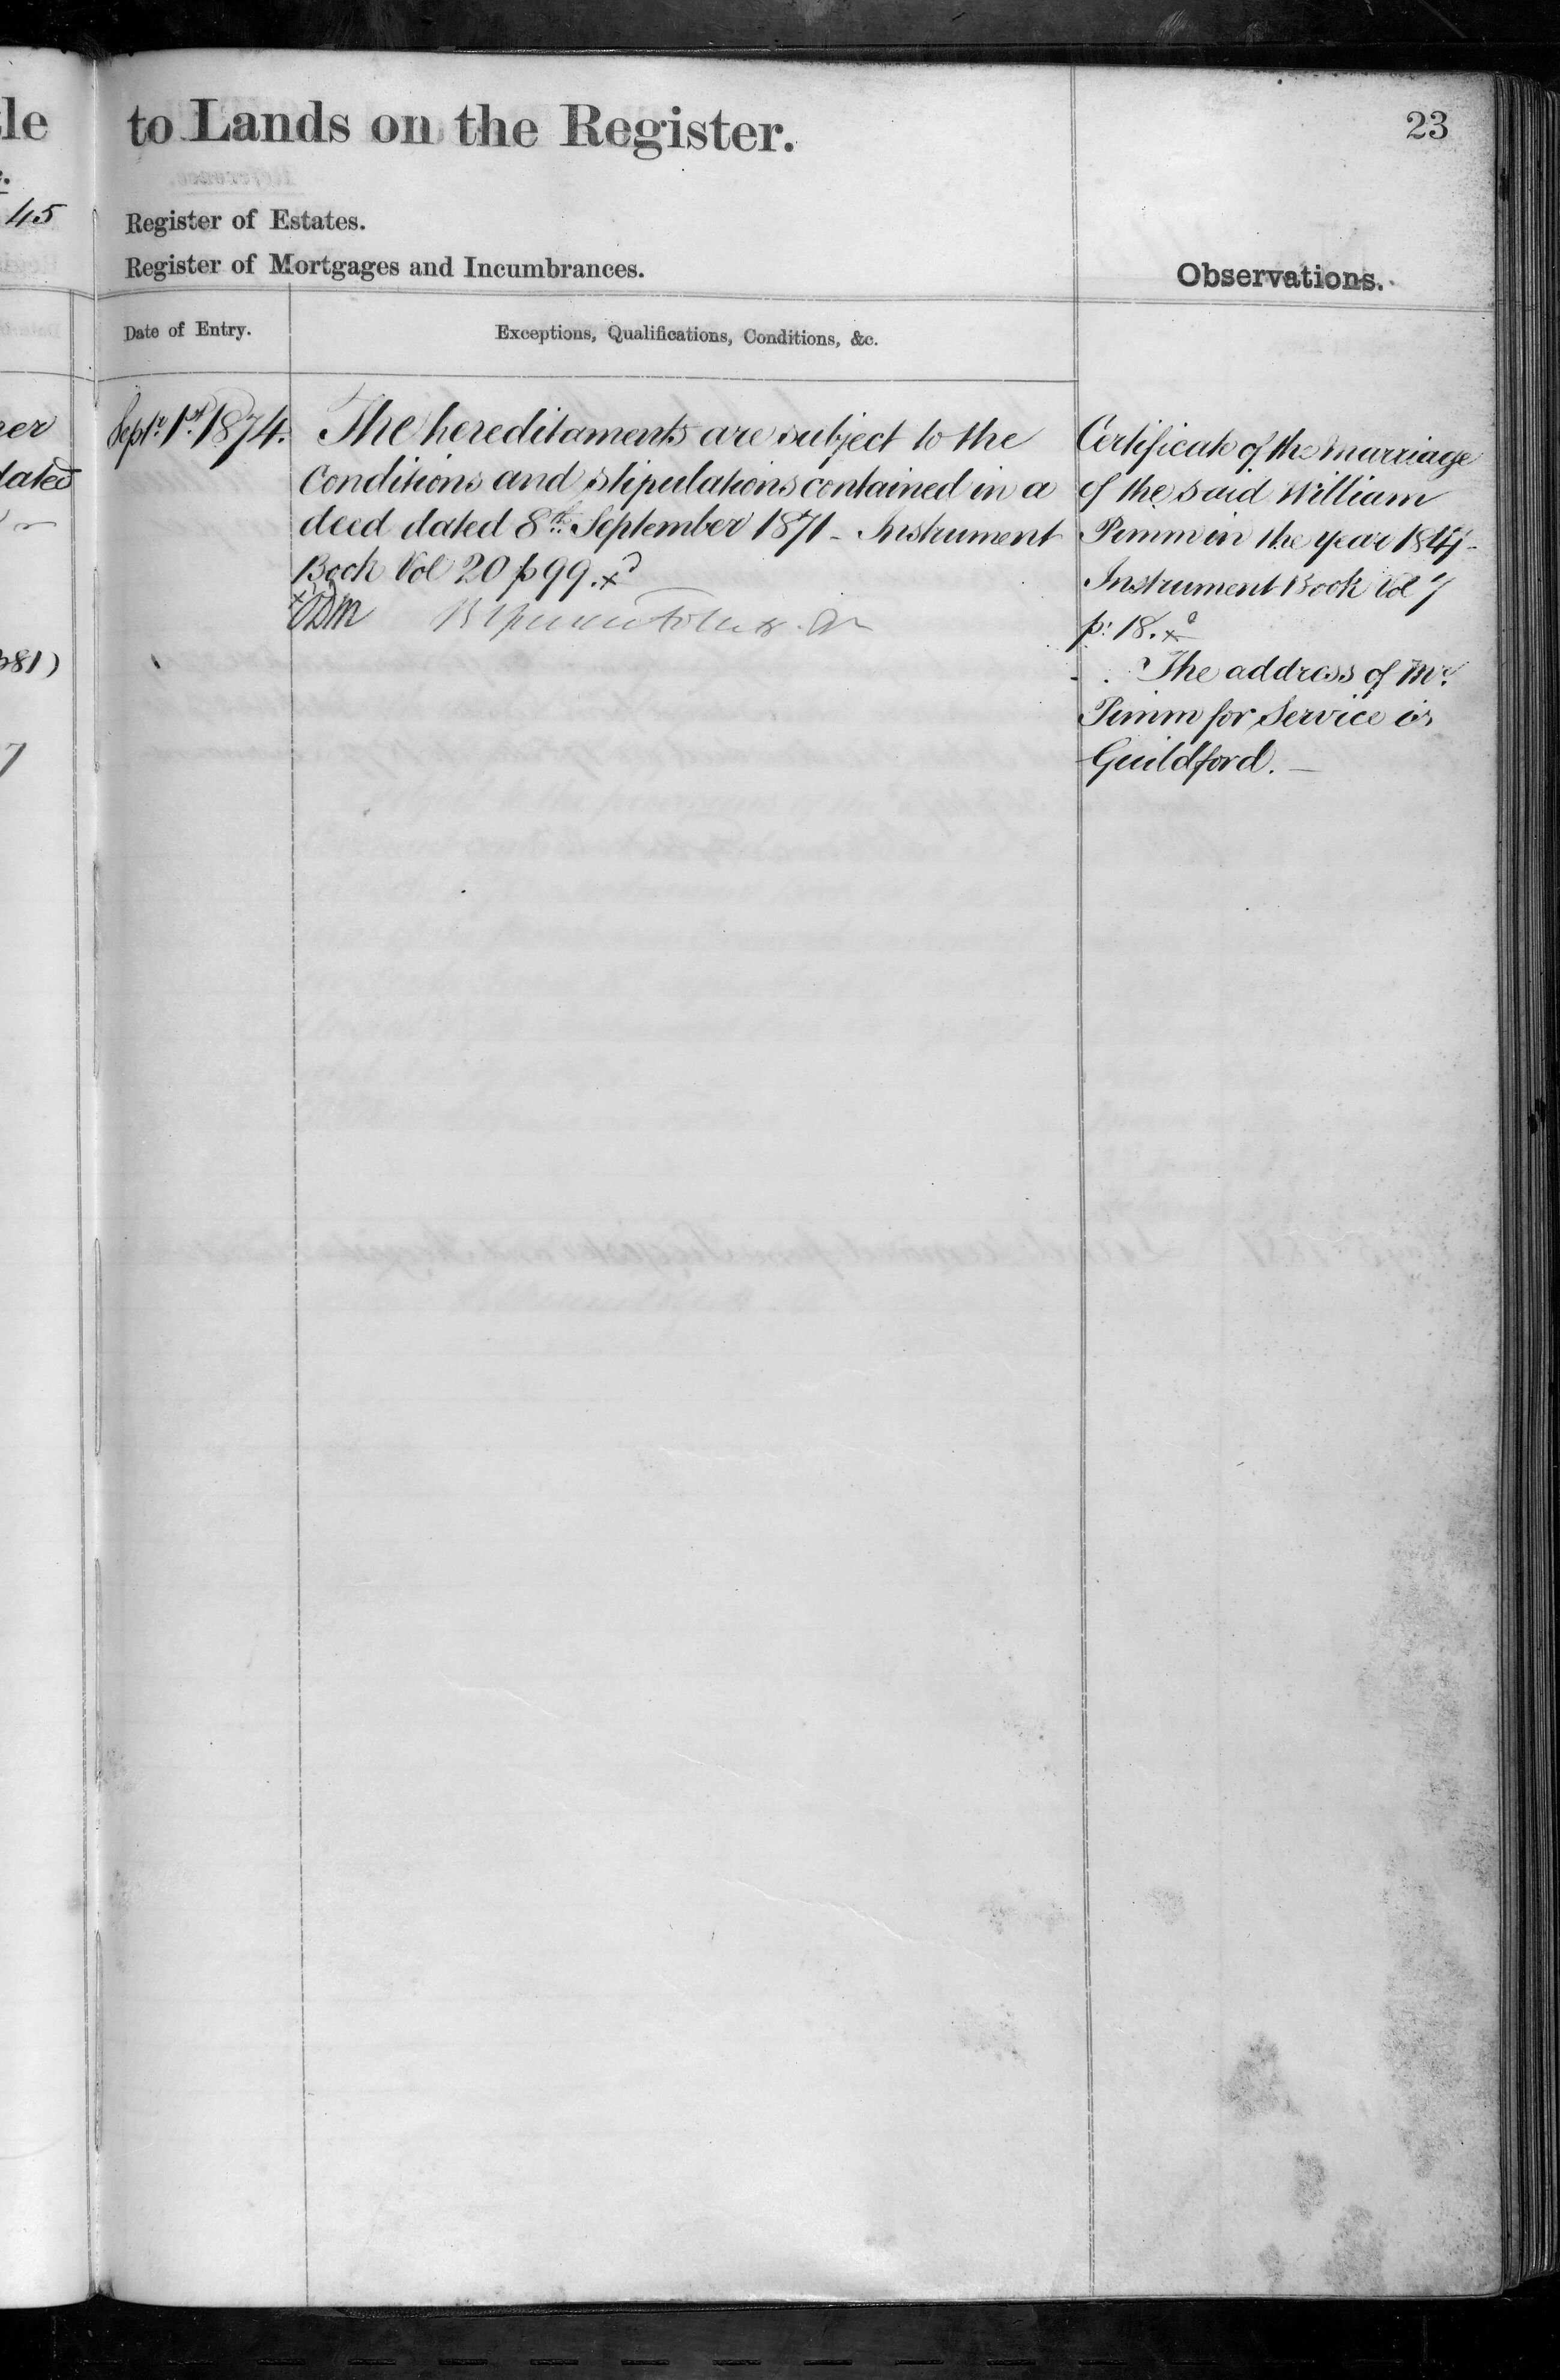 le
45
er
dated
381)
7
to Lands on the Register.
23
Register of Estates.
Register of Mortgages and Incumbrances.
Observations.
Date of Entry.
Exceptions, Qualifications, Conditions, &c.
Septr. 1st. 1874.
The hereditaments are subject to the
Conditions and stipulations contained in a
deed dated 8th. September 1871 - Instrument
Book Vol 20 p 99. x
Certificate of the marriage
of the said William
Pimm in the year 1847 -
Instrument Book Vol 7
p: 18. x
The address of Mr.
Pimm for Service is
Guildford. —